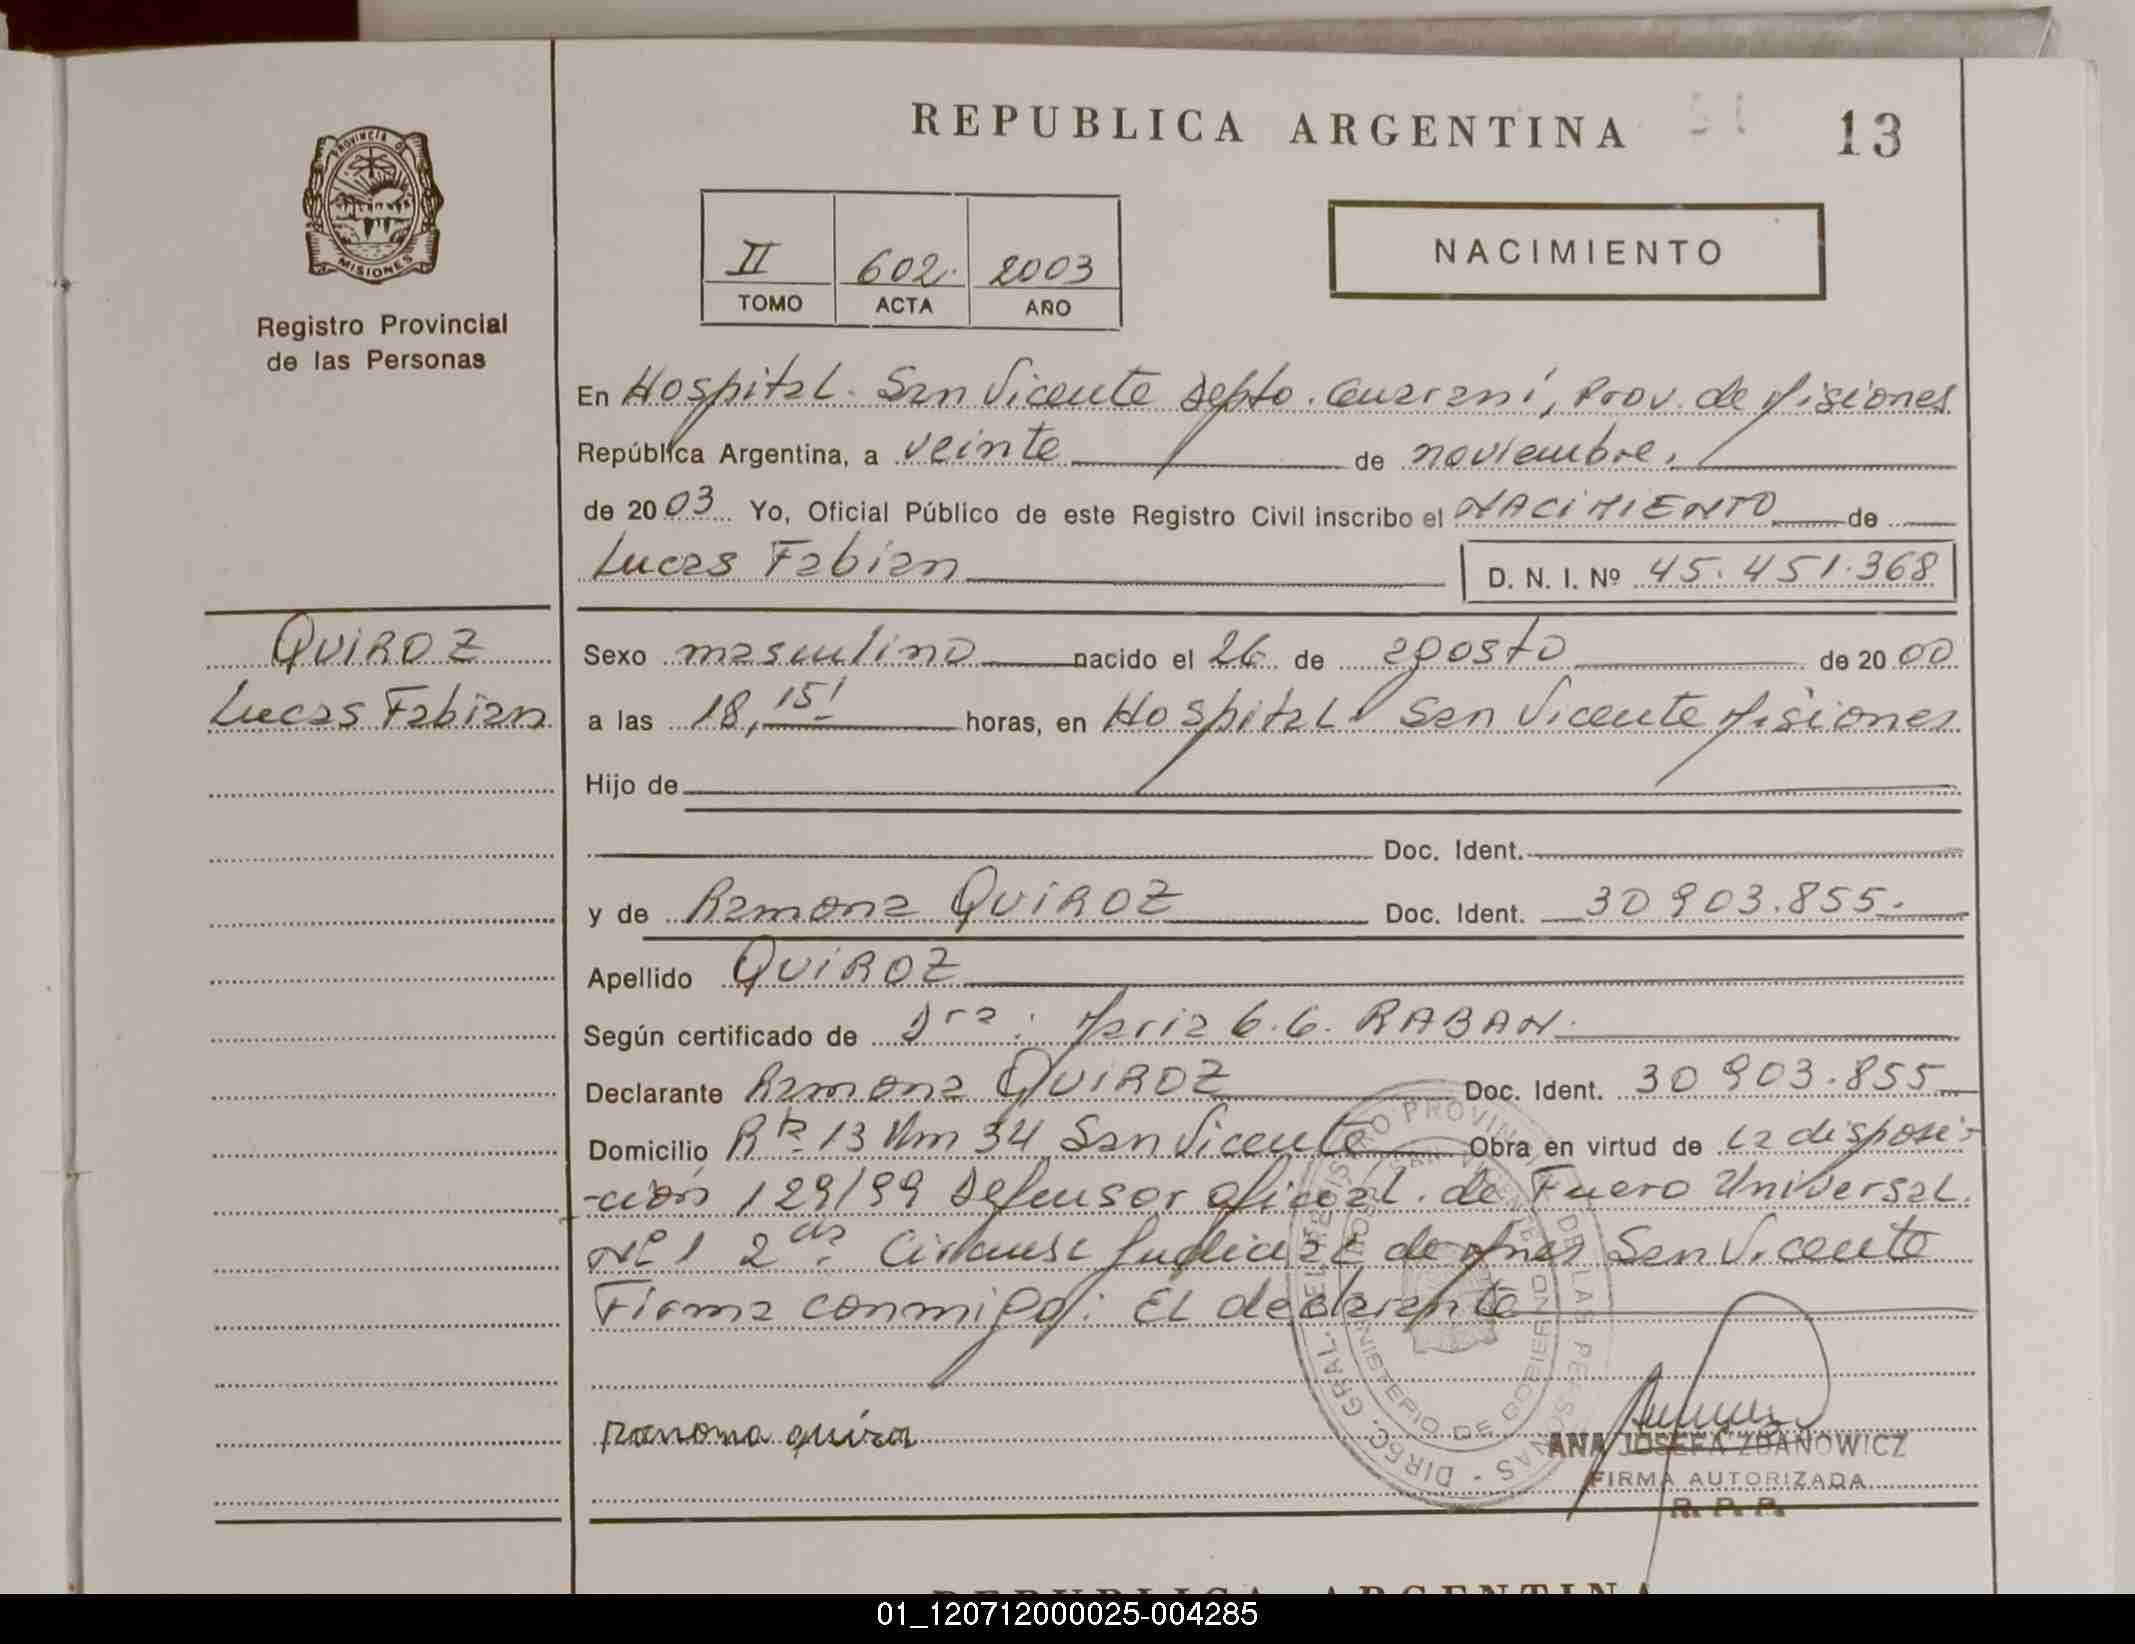 REPUBLICA ARGENTINA
13
PROVINCIA DE MISIONES
Registro Provincial
de las Personas
II 602. 2003
TOMO ACTA AÑO
NACIMIENTO
En Hospital. San Vicente Depto. Guaraní, Prov. de Misiones
República Argentina, a veinte de noviembre.
de 2003 Yo, Oficial Público de este Registro Civil inscribo el NACIMIENTO de
Lucas Fabian D. N. I. Nº 45.451.368
QUIROZ
Lucas Fabian
Sexo masculino nacido el 26 de agosto de 2000
a las 18,15' horas, en Hospital. San Vicente Misiones
Hijo de
Doc. Ident.
y de Ramona QUIROZ Doc. Ident. 30 903.855.
Apellido QUIROZ
Según certificado de Dra: Maria G.G. RABAN.
Declarante Ramona QUIROZ Doc. Ident. 30 903.855
Domicilio Rta 13 Km 34 San Vicente Obra en virtud de la disposi-
-ción 129/99 Defensor oficial. de Fuero Universal.
Nº 1 2da Circunsc Judicial de Mnes San Vicente
Firma conmigo: El declarante
ramona quiroz
DIREC. GRAL. DEL REGISTRO PROVINCIAL DE LAS PERSONAS
MINISTERIO DE GOBIERNO
SAN VICENTE
ANA JOSEFA ZDANOWICZ
FIRMA AUTORIZADA
R. P. P.
REPUBLICA ARGENTINA
01_120712000025-004285